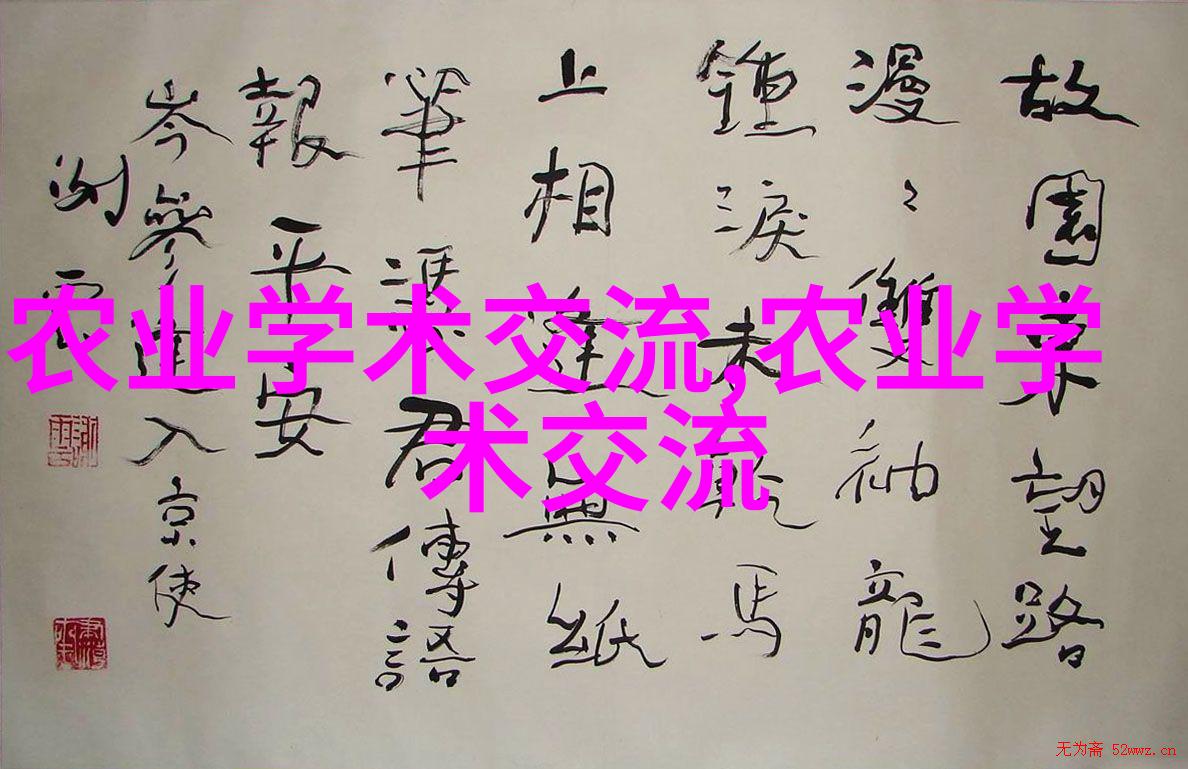 故園東望路
漫々雙袖龍
鍾淚未乾馬
上相逢無紙
筆憑君傳語
報平安
岑參逢入京使
农业学术交流,农业学
术交流
无为斋 52wwz.cn